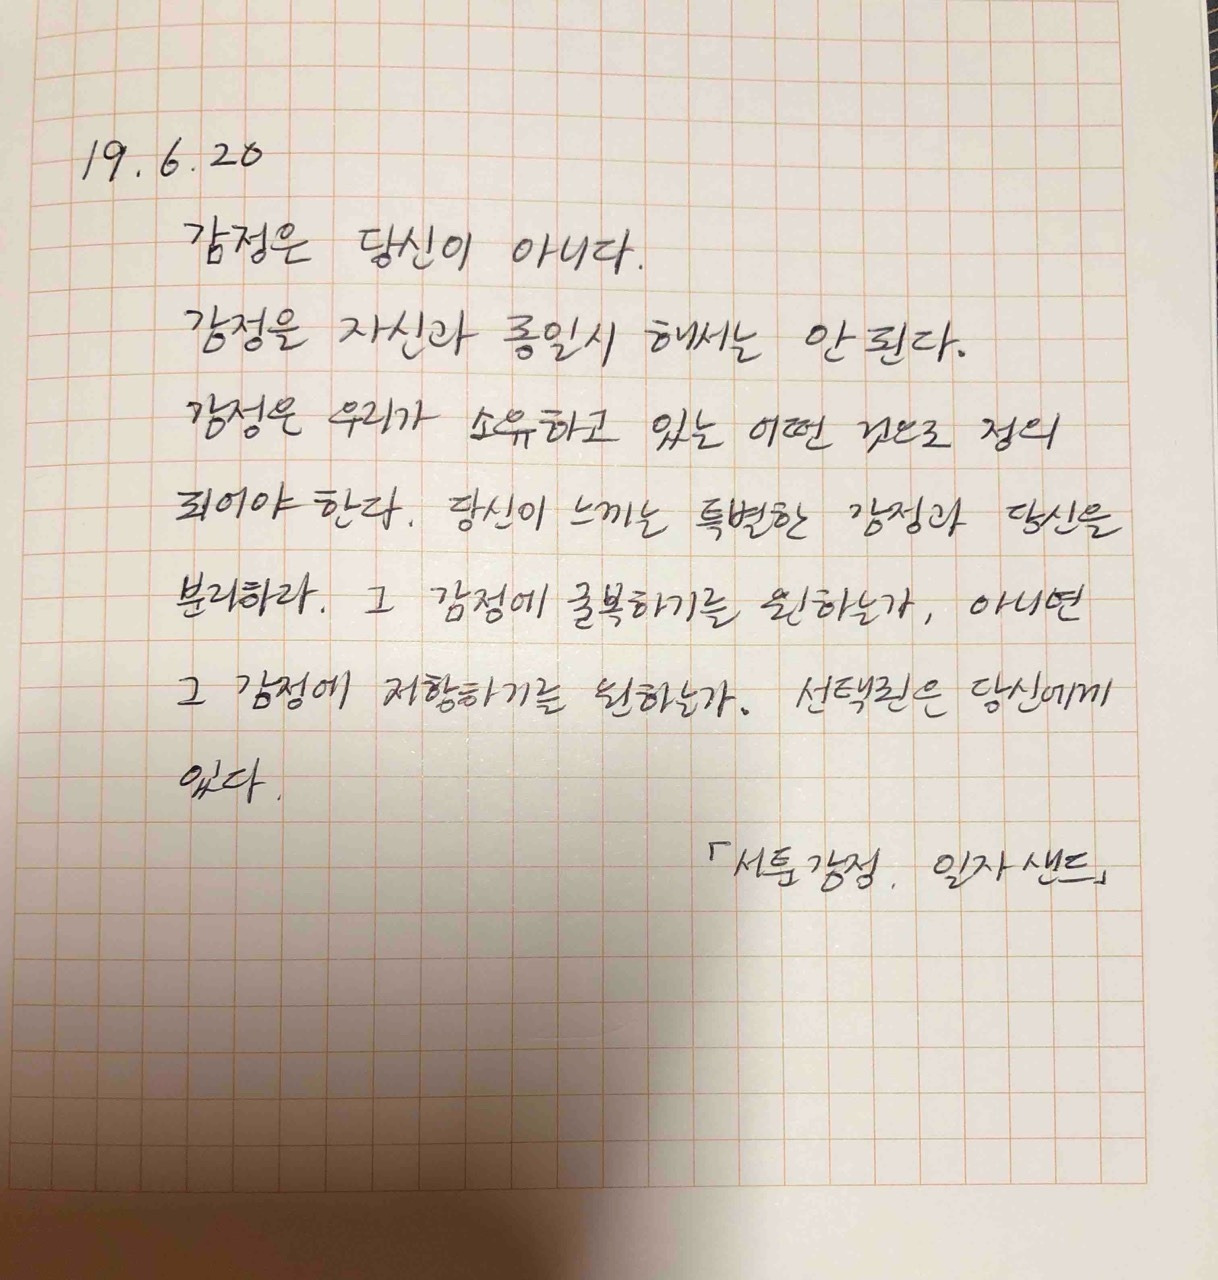 19.6.20
감정은 당신이 아니다.
감정을 자신과 동일시 해서는 안 된다.
감정은 우리가 소유하고 있는 어떤 것으로 정의
되어야 한다. 당신이 느끼는 특별한 감정과 당신을
분리하라. 그 감정에 굴복하기를 원하는가, 아니면
그 감정에 저항하기를 원하는가. 선택권은 당신에게
있다.
「서툰 감정. 일자 샌드」